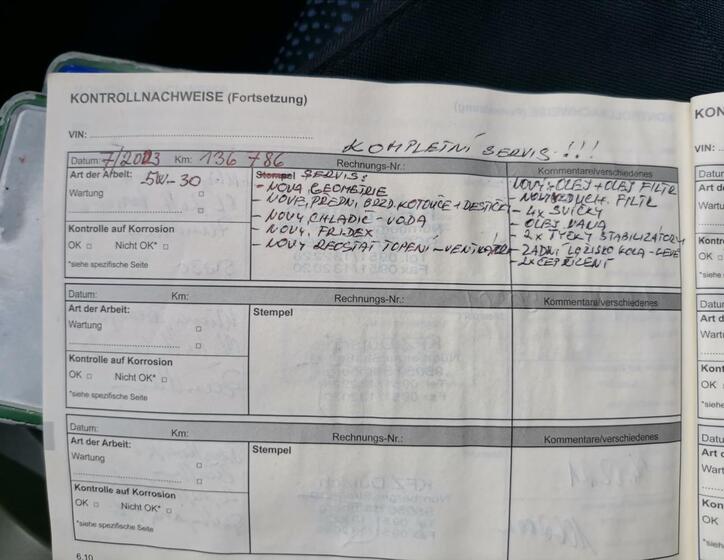 KONTROLLNACHWEISE (Fortsetzung)
VIN:
KOMPLETNÍ SERVIS!!!
Datum: 7/2023 Km: 136 786 Rechnungs-Nr.: Kommentare/verschiedenes
Art der Arbeit: 5W-30
Wartung
Kontrolle auf Korrosion
OK Nicht OK*)
*siehe spezifische Seite
Stempel SERVIS:
- NOVÁ GEOMETRIE
- NOVÉ, PŘEDNÍ BRZD. KOTOUČE + DESTIČKY
- NOVÝ CHLADIČ - VODA
- NOVÝ, FRIDEX
- NOVÝ REOSTAT TOPENÍ - VENTILÁTOR
NOVÝ + OLEJ + OLEJ FILTR
- NOVÝ VZDUCH. FILTR
- 4x SVÍČKY
- OLEJ. VANA
- 2x TYČKY STABILIZÁTORU
- ZADNÍ LOŽISKO KOLA - LEVÉ
- 2x ČEP ŘÍZENÍ
Datum: Km: Rechnungs-Nr.: Kommentare/verschiedenes
Art der Arbeit:
Wartung
Kontrolle auf Korrosion
OK Nicht OK*)
*siehe spezifische Seite
Stempel
Datum: Km: Rechnungs-Nr.: Kommentare/verschiedenes
Art der Arbeit:
Wartung
Kontrolle auf Korrosion
OK Nicht OK*)
*siehe spezifische Seite
Stempel
6.10
KON
VIN:
Datu
Art d
Wart
Kont
OK
*siehe
Datu
Art d
Wartu
Kont
OK
*siehe
Datu
Art d
Wart
Kont
OK
*siehe